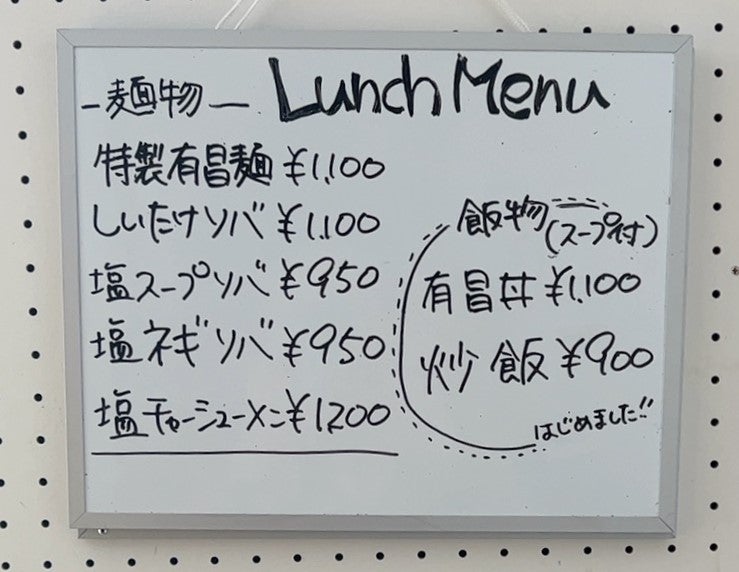 Lunch Menu
-麺物-
特製有昌麺 ¥1,100
しいたけソバ ¥1,100
塩スープソバ ¥950
塩ネギソバ ¥950
塩チャーシューメン ¥1,200
飯物(スープ付)
有昌丼 ¥1,100
炒飯 ¥900
はじめました!!